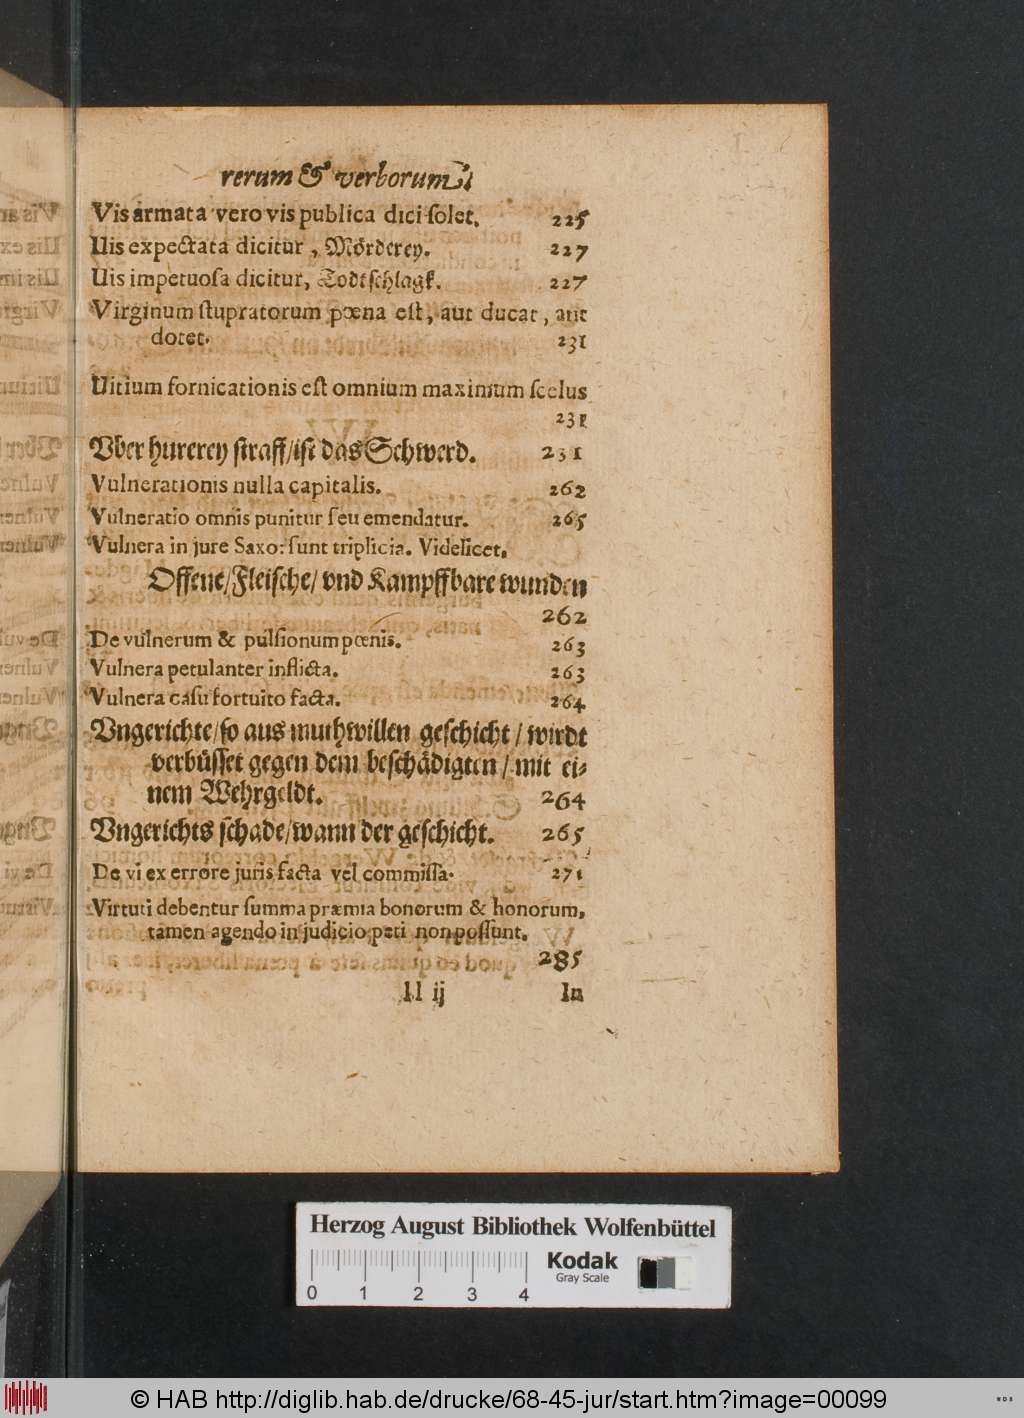 rerum & verborum
Vis armata vero vis publica dici solet. 225
Uis expectata dicitur, Mörderey. 227
Uis impetuosa dicitur, Todtschlagk. 227
Virginum stupratorum pœna est, aut ducat, aut
dotet. 231
Uitium fornicationis est omnium maximum scelus
231
Vber hurerey straff/ist das Schwerd. 231
Vulnerationis nulla capitalis. 262
Vulneratio omnis punitur seu emendatur. 265
Vulnera in jure Saxo: sunt triplicia. Videlicet,
Offene/Fleische/ vnd Kampffbare wunden
262
De vulnerum & pulsionum pœnis. 263
Vulnera petulanter inflicta. 263
Vulnera casu fortuito facta. 264
Vngerichte/so aus muthwillen geschicht / wirdt
verbüsset gegen dem beschädigten / mit ei-
nem Wehrgeldt. 264
Vngerichts schade/wann der geschicht. 265
De vi ex errore juris facta vel commissa. 271
Virtuti debentur summa præmia bonorum & honorum,
tamen agendo in judicio peti non possunt.
285
ll ij In
Herzog August Bibliothek Wolfenbüttel
Kodak
Gray Scale
0 1 2 3 4
© HAB http://diglib.hab.de/drucke/68-45-jur/start.htm?image=00099